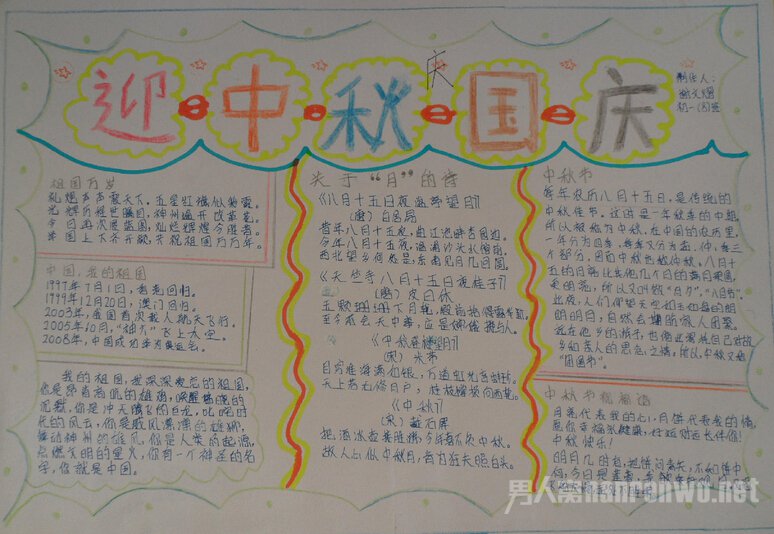 迎中秋国庆
庆
制作人：
初一(8)班
祖国万岁
礼炮声声震天下，五星红旗似彩霞。
光辉历程世瞩目，神州遍开改革花。
今日再次展蓝图，灿烂辉煌今胜昔。
举国上下齐开颜，共祝祖国万万年。
中国，我的祖国
1997年7月1日，香港回归。
1999年12月20日，澳门回归。
2003年，首次载人航天飞行。
2005年10月，“神六”飞上太空。
2008年，中国成功举办奥运会。
我的祖国，我深深爱恋的祖国，
你是昂首高吭的雄鸡，唤醒拂晓的
沉默，你是冲天腾飞的巨龙，叱咤时
代的风云，你是威风凛凛的雄狮，
舞动神州的雄风，你是人类的起源，
点燃文明的星火，你有一个神圣的名
字，你就是中国。
关于“月”的诗
《八月十五日夜湓亭望月》
(唐)白居易
昔年八月十五夜，曲江池畔杏园边。
今年八月十五夜，湓浦沙头水馆前。
西北望乡何处是，东南见月几回圆。
《天竺寺八月十五日夜桂子》
(唐)皮日休
玉颗珊珊下月轮，殿前拾得露华新。
至今不会天中事，应是嫦娥掷与人。
《中秋登楼望月》
(宋)米芾
目穷淮海满如银，万道虹光育蚌珍。
天上若无修月户，桂枝撑损向西轮。
《中秋》
(宋)戴石屏
把酒冰壶接胜游，今年喜不负中秋。
故人心似中秋月，肯为狂夫照白头。
中秋节
每年农历八月十五日，是传统的
中秋佳节。这时是一年秋季的中期，
所以被称为中秋，在中国的农历里，
一年分为四季，每季又分为孟、仲、季三
个部分，因而中秋也称仲秋。八月十
五的月亮比其他几个月的满月更圆，
更明亮，所以又叫做“月夕”，“八月节”。
此夜，人们仰望天空如玉如盘的朗
朗明月，自然会期盼家人团聚。
远在他乡的游子，也借此寄托自己对故
乡和亲人的思念之情，所以，中秋又称
“团圆节”。
中秋节祝福语
月亮代表我的心，月饼代表我的情，
愿你幸福 健康，好运财运长伴你！
中秋快乐！
明月几时有，把饼问青天，不知饼中
何，今日是
男人窝nanrenwo.net